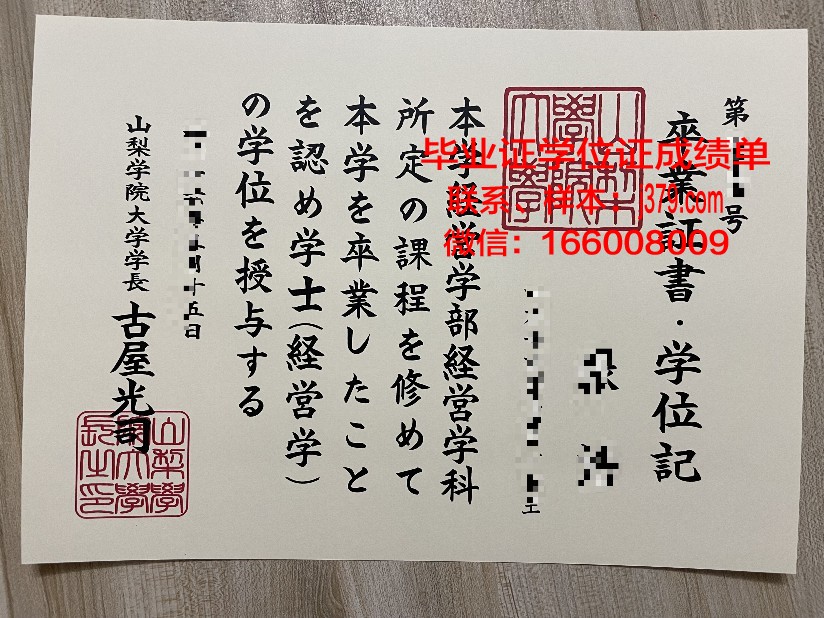 第 号
卒業証書・学位記
本学経営学部経営学科
所定の課程を修めて
本学を卒業したこと
を認め学士(経営学)
の学位を授与する
月十五日
山梨学院大学学長 古屋光司
山梨学院大学
山梨學院大學長之印
毕业证学位证成绩单
联系、样本：j379.com
微信：166008009